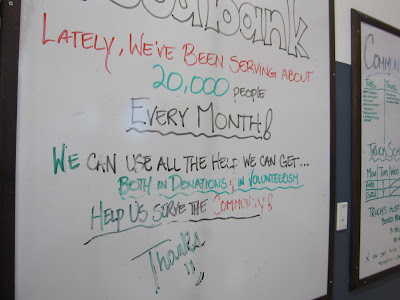 Lately, We've Been Serving About
20,000 people
Every Month!
We can use all the help we can get...
Both in Donations & in Volunteerism
Help Us Serve the Community!
Thanks
Truck
Mon Tue
Trucks must